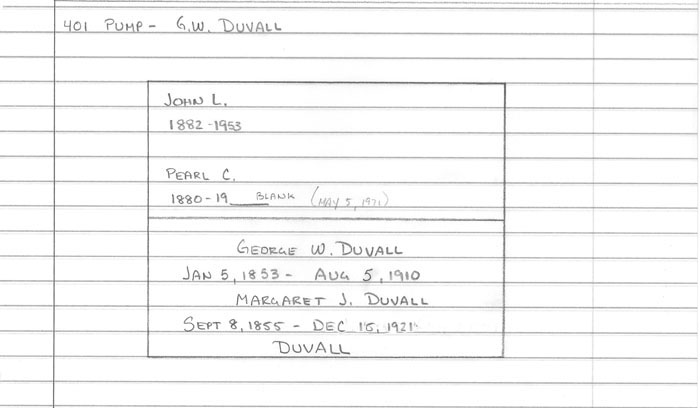 401 PUMP - G.W. DUVALL
JOHN L.
1882-1953
PEARL C.
1880-19___ BLANK (MAY 5, 1971)
GEORGE W. DUVALL
JAN 5, 1853 - AUG 5, 1910
MARGARET J. DUVALL
SEPT 8, 1855 - DEC 15, 1921
DUVALL